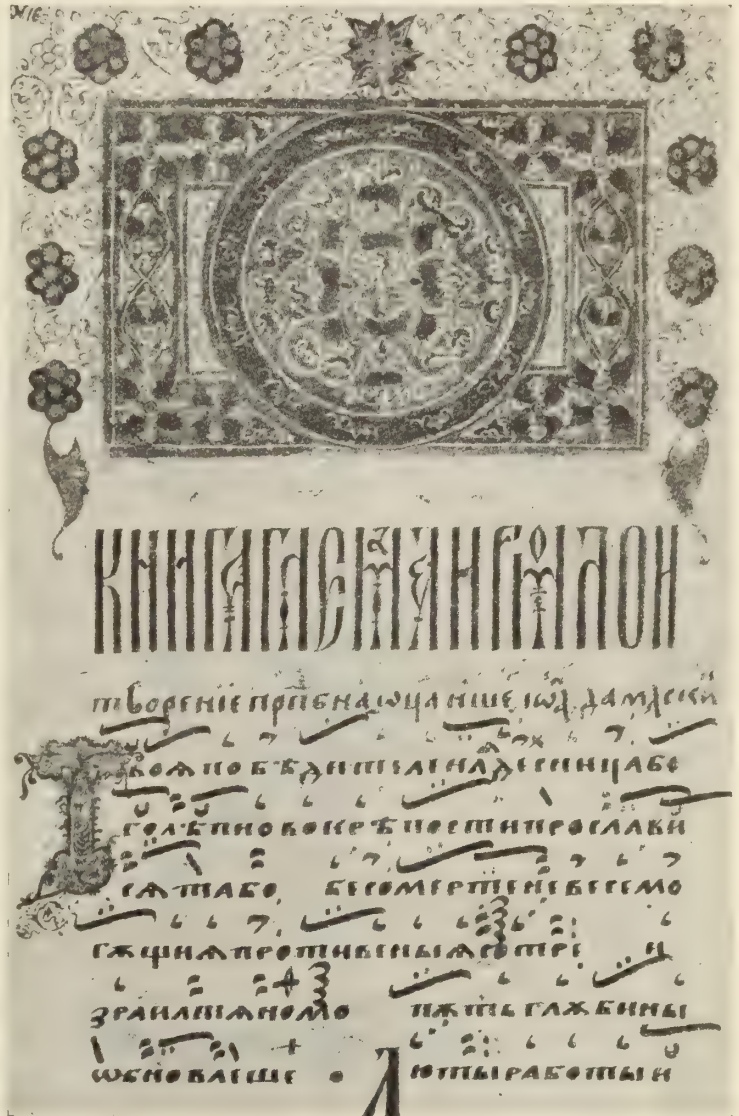 КНИГА ГЛЕМАꙖ ИРМОЛОИ
творенїе прпбна ѡца нше, іѡа, дамаски
ТВОѦ ПОБѢДИТЕЛЕНАѦ ДЕСНИЦА БО
ГОЛѢПНО ВО КРѢПОСТИ ПРОСЛАВИ
СѦ ТА БО, БЕСОМЕРТЕНЕ ВЕСЕМО
ГѪЩИѦ ПРОТИВЕНЫѦ СОТРЕ И
ЗРАИЛТѦНОМО ПѪТЬ ГЛѪБИНЫ
ѠБНОВЛЕШЕ • ЛЮТЫ РАБОТЫ И